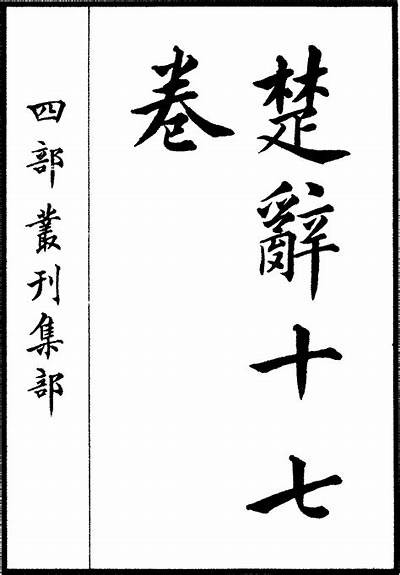 楚辭十七
卷
四部叢刊集部